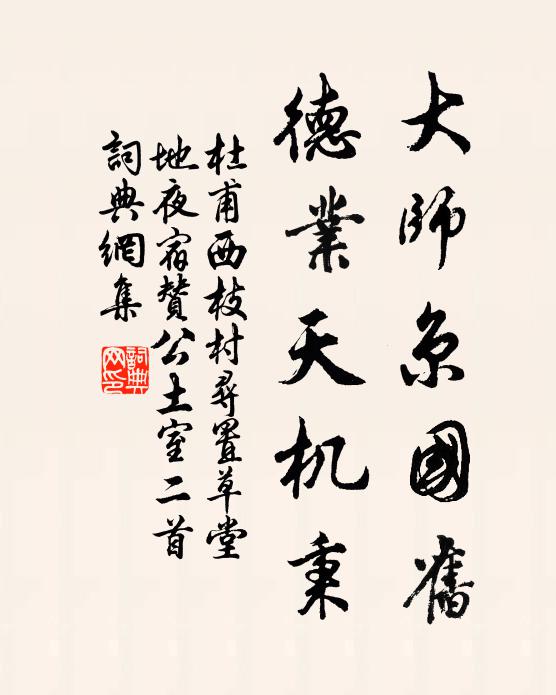 大師京國舊
德業天机秉
杜甫西枝村尋置草堂
地夜宿贊公土室二首
詞典網集
詞典
网印